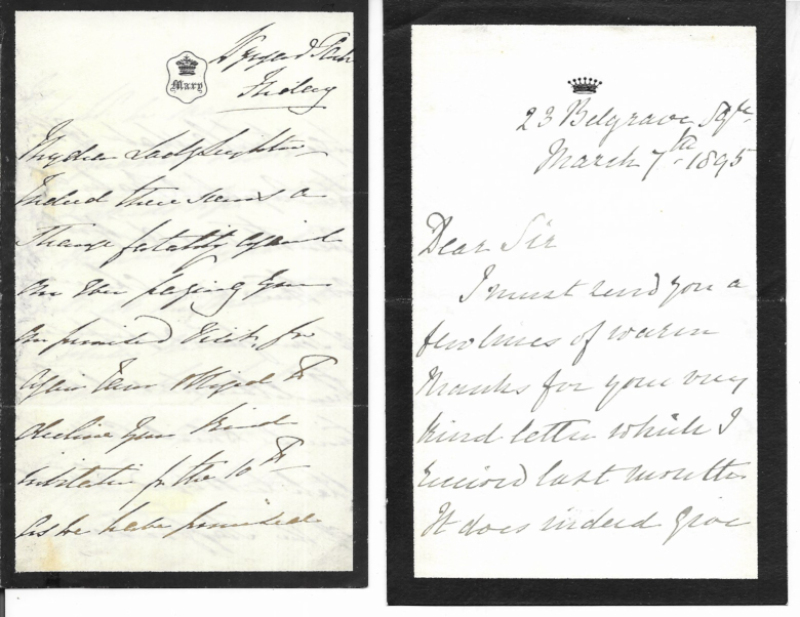 Mary
Wynyard Park
My dear Lady Leighton
Indeed there seems a
strange fatality against
our ever paying you
our promised visit for
again I am obliged to
decline your kind
invitation for the 10th
as we have promised
23 Belgrave Sqre
March 7th 1895
Dear Sir
I must send you a
few lines of warm
thanks for your very
kind letter which I
received last month
It does indeed give